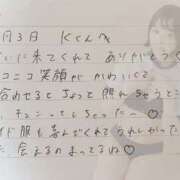 月3日 Kくんへ
いに来てくれて ありがとう♡
コニコ笑顔が かわいくて
合わせると ちょって 照れちゃうとこ
、チュンってしちゃった〜♡
ド服も喜んでくれてうれしかった
た 会えるのまってるね♡